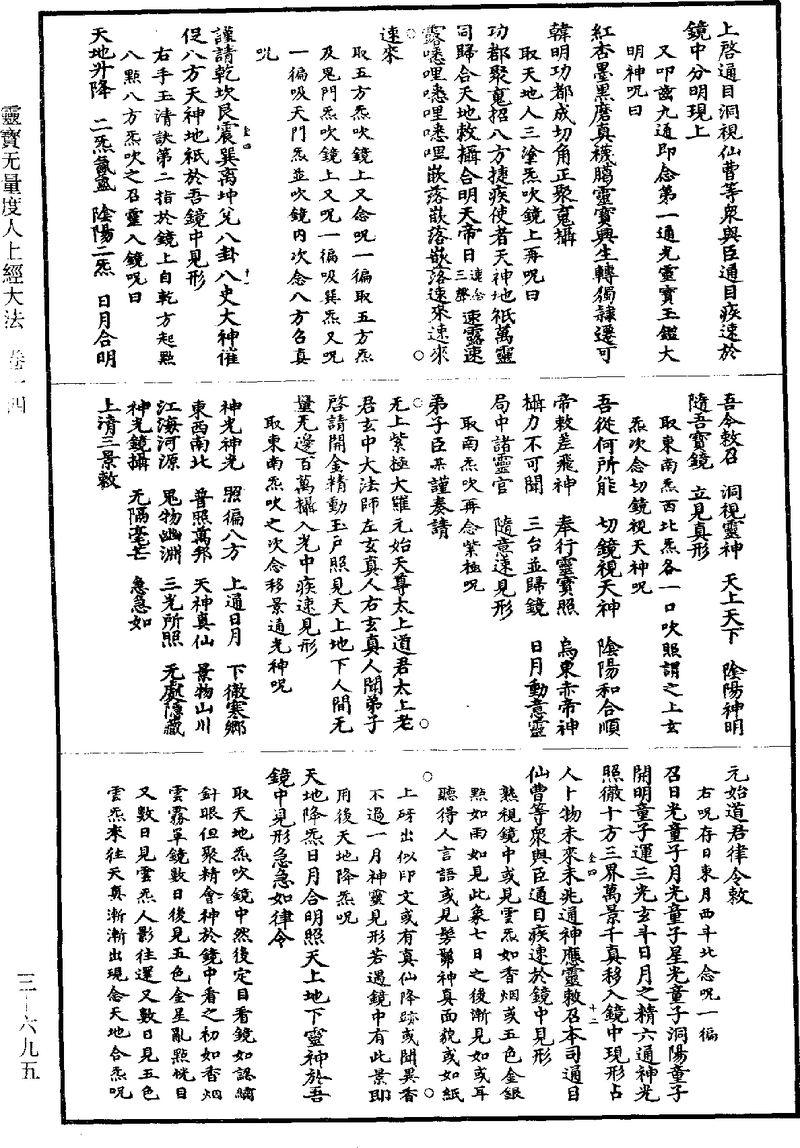 上啓通目洞視仙曹等眾與臣通目疾速於
鏡中分明現上
又叩齒九通即念第一通光靈寶玉鑑大
明神呪曰
紅杏墨黑磨真襪𦡱靈寶興生轉獨隸遷可
韓明功都成切角正聚䰟攝
取天地人三塗炁吹鏡上再呪曰
功都聚䰟招八方捷疾使者天神地祇萬靈
司歸合天地敕攝合明天帝日速念三聲速露速
露㗭哩㗭哩㗭哩嵌落嵌落嵌落速來速來
速來
取五方炁吹鏡上又念呪一徧取五方炁
及鬼門炁吹鏡上又呪一徧吸巽炁又呪
一徧吸天門炁並吹鏡内次念八方召真
呪
謹請乾坎艮震巽离坤兌八卦八史大神催
促八方天神地祇於吾鏡中見形
右手玉清訣第二指於鏡上自乾方起點
八點八方炁吹之召靈入鏡呪曰
天地升降　二炁氤氳　陰陽二炁　日月合明
吾今敕召　洞視靈神　天上天下　陰陽神明
隨吾寶鏡　立見真形
取東南炁西北炁各一口吹照謂之上玄
炁次念切鏡視天神呪
吾從何所能　切鏡視天神　陰陽和合順
帝敕差飛神　奉行靈寶照　烏東赤帝神
攝力不可聞　三台並歸鏡　日月動意靈
局中諸靈官　隨意速見形
取南炁吹再念紫極呪
弟子臣某謹奏請
无上紫極大羅元始天尊太上道君太上老
君玄中大法師左玄真人右玄真人聞弟子
啓請開金精動玉户照見天上地下人間无
量无邊百萬攝入光中疾速見形
取東南炁吹之次念移景通光神呪
神光神光　照徧八方　上通日月　下徹寒鄉
東西南北　普照萬邦　天神真仙　景物山川
江海河源　鬼物幽淵　三光所照　无處隱藏
神光鏡攝　无隔毫芒　急急如
上清三景敕
元始道君律令敕
右呪存日東月西斗北念呪一徧
召日光童子月光童子星光童子洞陽童子
開明童子運三光玄斗日月之精六通神光
照徹十方三界萬景千真移入鏡中現形占
人卜物未來未兆通神應靈敕召本司通目
仙曹等眾與臣通目疾速於鏡中見形
熟視鏡中或見雲炁如香烟或五色金銀
點如雨如見此象七日之後漸見如或耳
聽得人言語或見髣髴神真面貌或如紙
上砑出似印文或有真仙降跡或聞異香
不過一月神靈見形若遇鏡中有此景即
用後天地降炁呪
天地降炁日月合明照天上地下靈神於吾
鏡中見形急急如律令
取天地炁吹鏡中然後定目看鏡如認繡
針眼但聚精會神於鏡中看之初如香烟
雲霧罩鏡數日後見五色金星亂點恍目
又數日見雲炁人影往還又數日見五色
雲炁來往天真漸漸出現念天地合炁呪
靈寶无量度人上經大法　卷一四
三—六九五